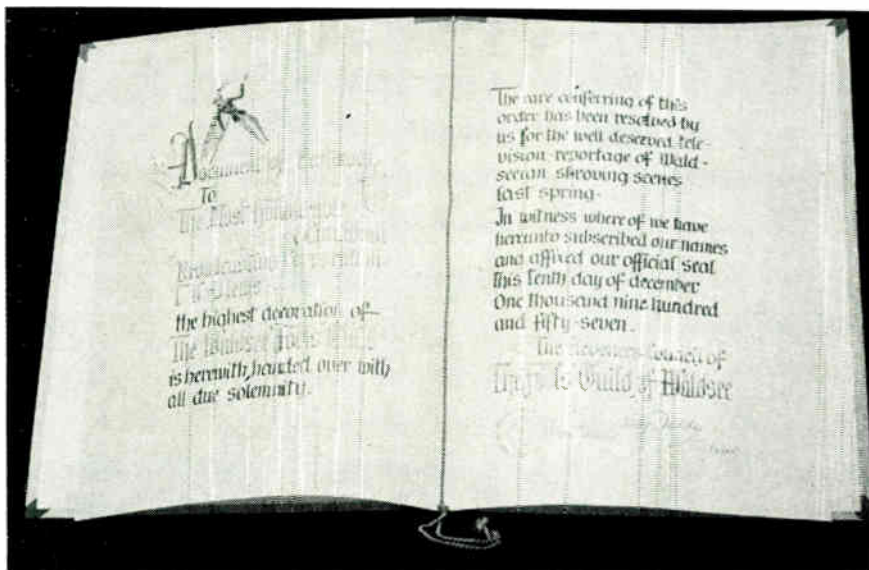 A Document of
To
The Most Honourable
Broadcasting
the highest decoration of
The Waldsee
is herewith handed over with
all due solemnity.
The rare conferring of this
order has been resolved by
us for the well deserved tele-
vision reportage of Wald-
seean shroving scenes
last spring.
In witness where of we have
hereunto subscribed our names
and affixed our official seal
this tenth day of december
One thousand nine hundred
and fifty-seven.
The Council of
Guild of Waldsee